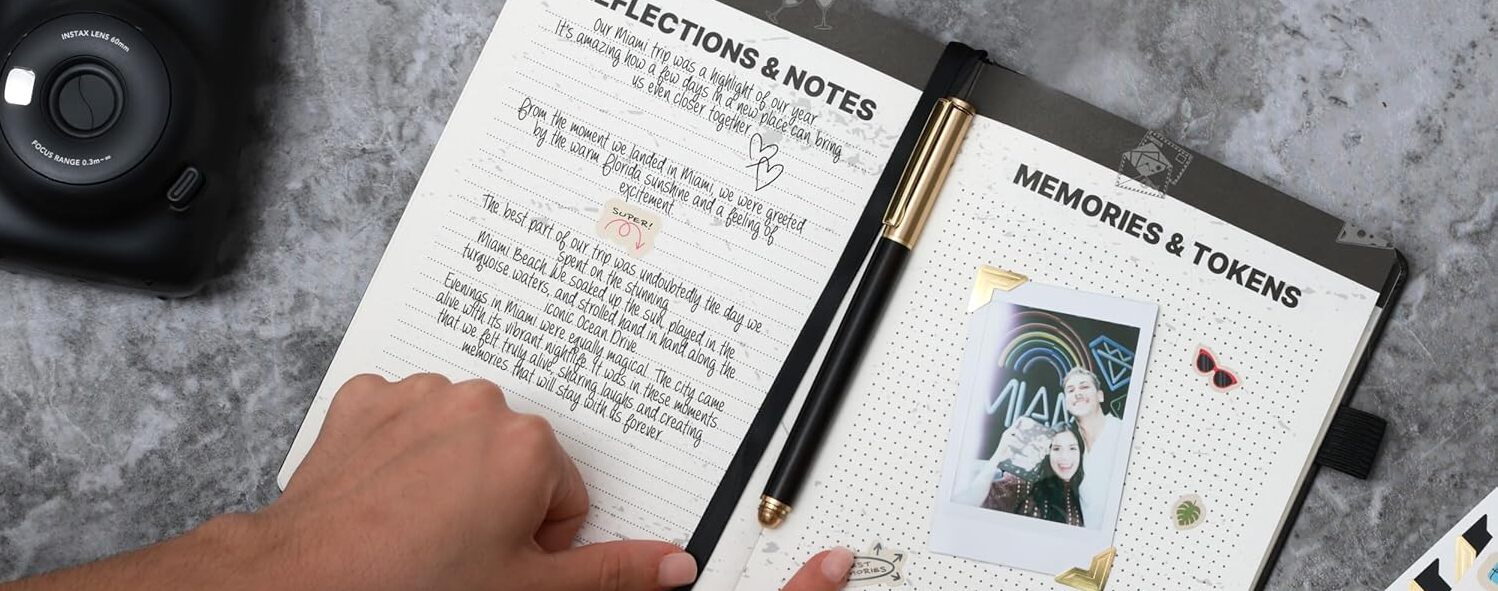 INSTAX LENS 60mm
FOCUS RANGE 0.3m~∞
REFLECTIONS & NOTES
Our Miami trip was a highlight of our year.
It's amazing how a few days in a new place can bring
us even closer together
From the moment we landed in Miami, we were greeted
by the warm Florida sunshine and a feeling of
excitement.
SUPER!
The best part of our trip was undoubtedly the day we
spent on the stunning
Miami Beach. We soaked up the sun, played in the
turquoise waters, and strolled hand in hand along the
iconic Ocean Drive.
Evenings in Miami were equally magical. The city came
alive with its vibrant nightlife. It was in these moments
that we felt truly alive, sharing laughs and creating
memories that will stay with us forever.
MEMORIES & TOKENS
MIAMI